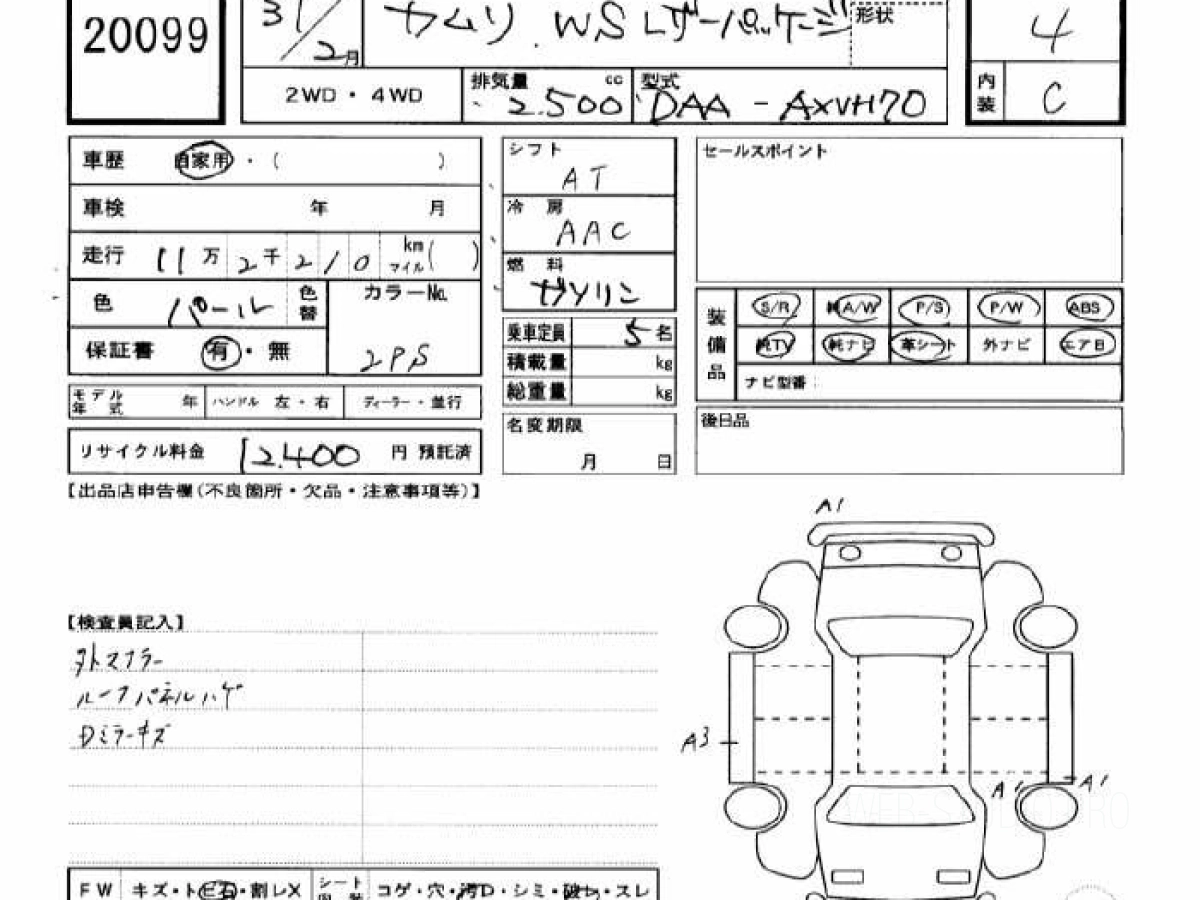 20099
31/2月
カムリ WS レザーパッケージ 形状
4
2WD・4WD
排気量 cc 2.500
型式 DAA-AXVH70
内装 C
車歴 自家用・( )
車検 年 月
走行 11万2千210 km マイル( )
色 パール 色替
カラーNo. 2PS
保証書 有・無
シフト AT
冷房 AAC
燃料 ガソリン
乗車定員 5名
積載量 kg
総重量 kg
セールスポイント
装備品 S/R 純A/W P/S P/W ABS
純TV 純ナビ 革シート 外ナビ エアB
ナビ型番:
モデル年式 年 ハンドル 左・右 ディーラー・並行
名変期限 月 日
後日品
リサイクル料金 12.400 円 預託済
【出品店申告欄(不良箇所・欠品・注意事項等)】
A1
【検査員記入】
外マフラー
ルーフパネルハゲ
Dミラーキズ
A3
A1
A1
FW キズ・トビ石・割レX
シート内装 コゲ・穴・汚D・シミ・破れ・スレ